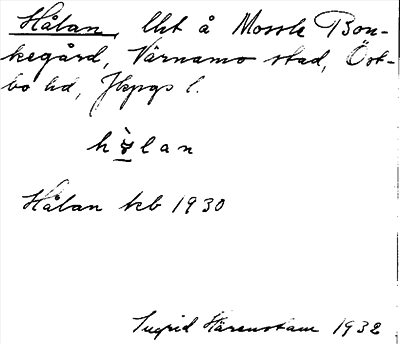 Hålan, lht å Mossle Bon-
kegård, Värnamo stad, Öst-
bo hd, Jkpgs l.
hò̱lan
Hålan kb 1930
Ingrid Härenstam 1932